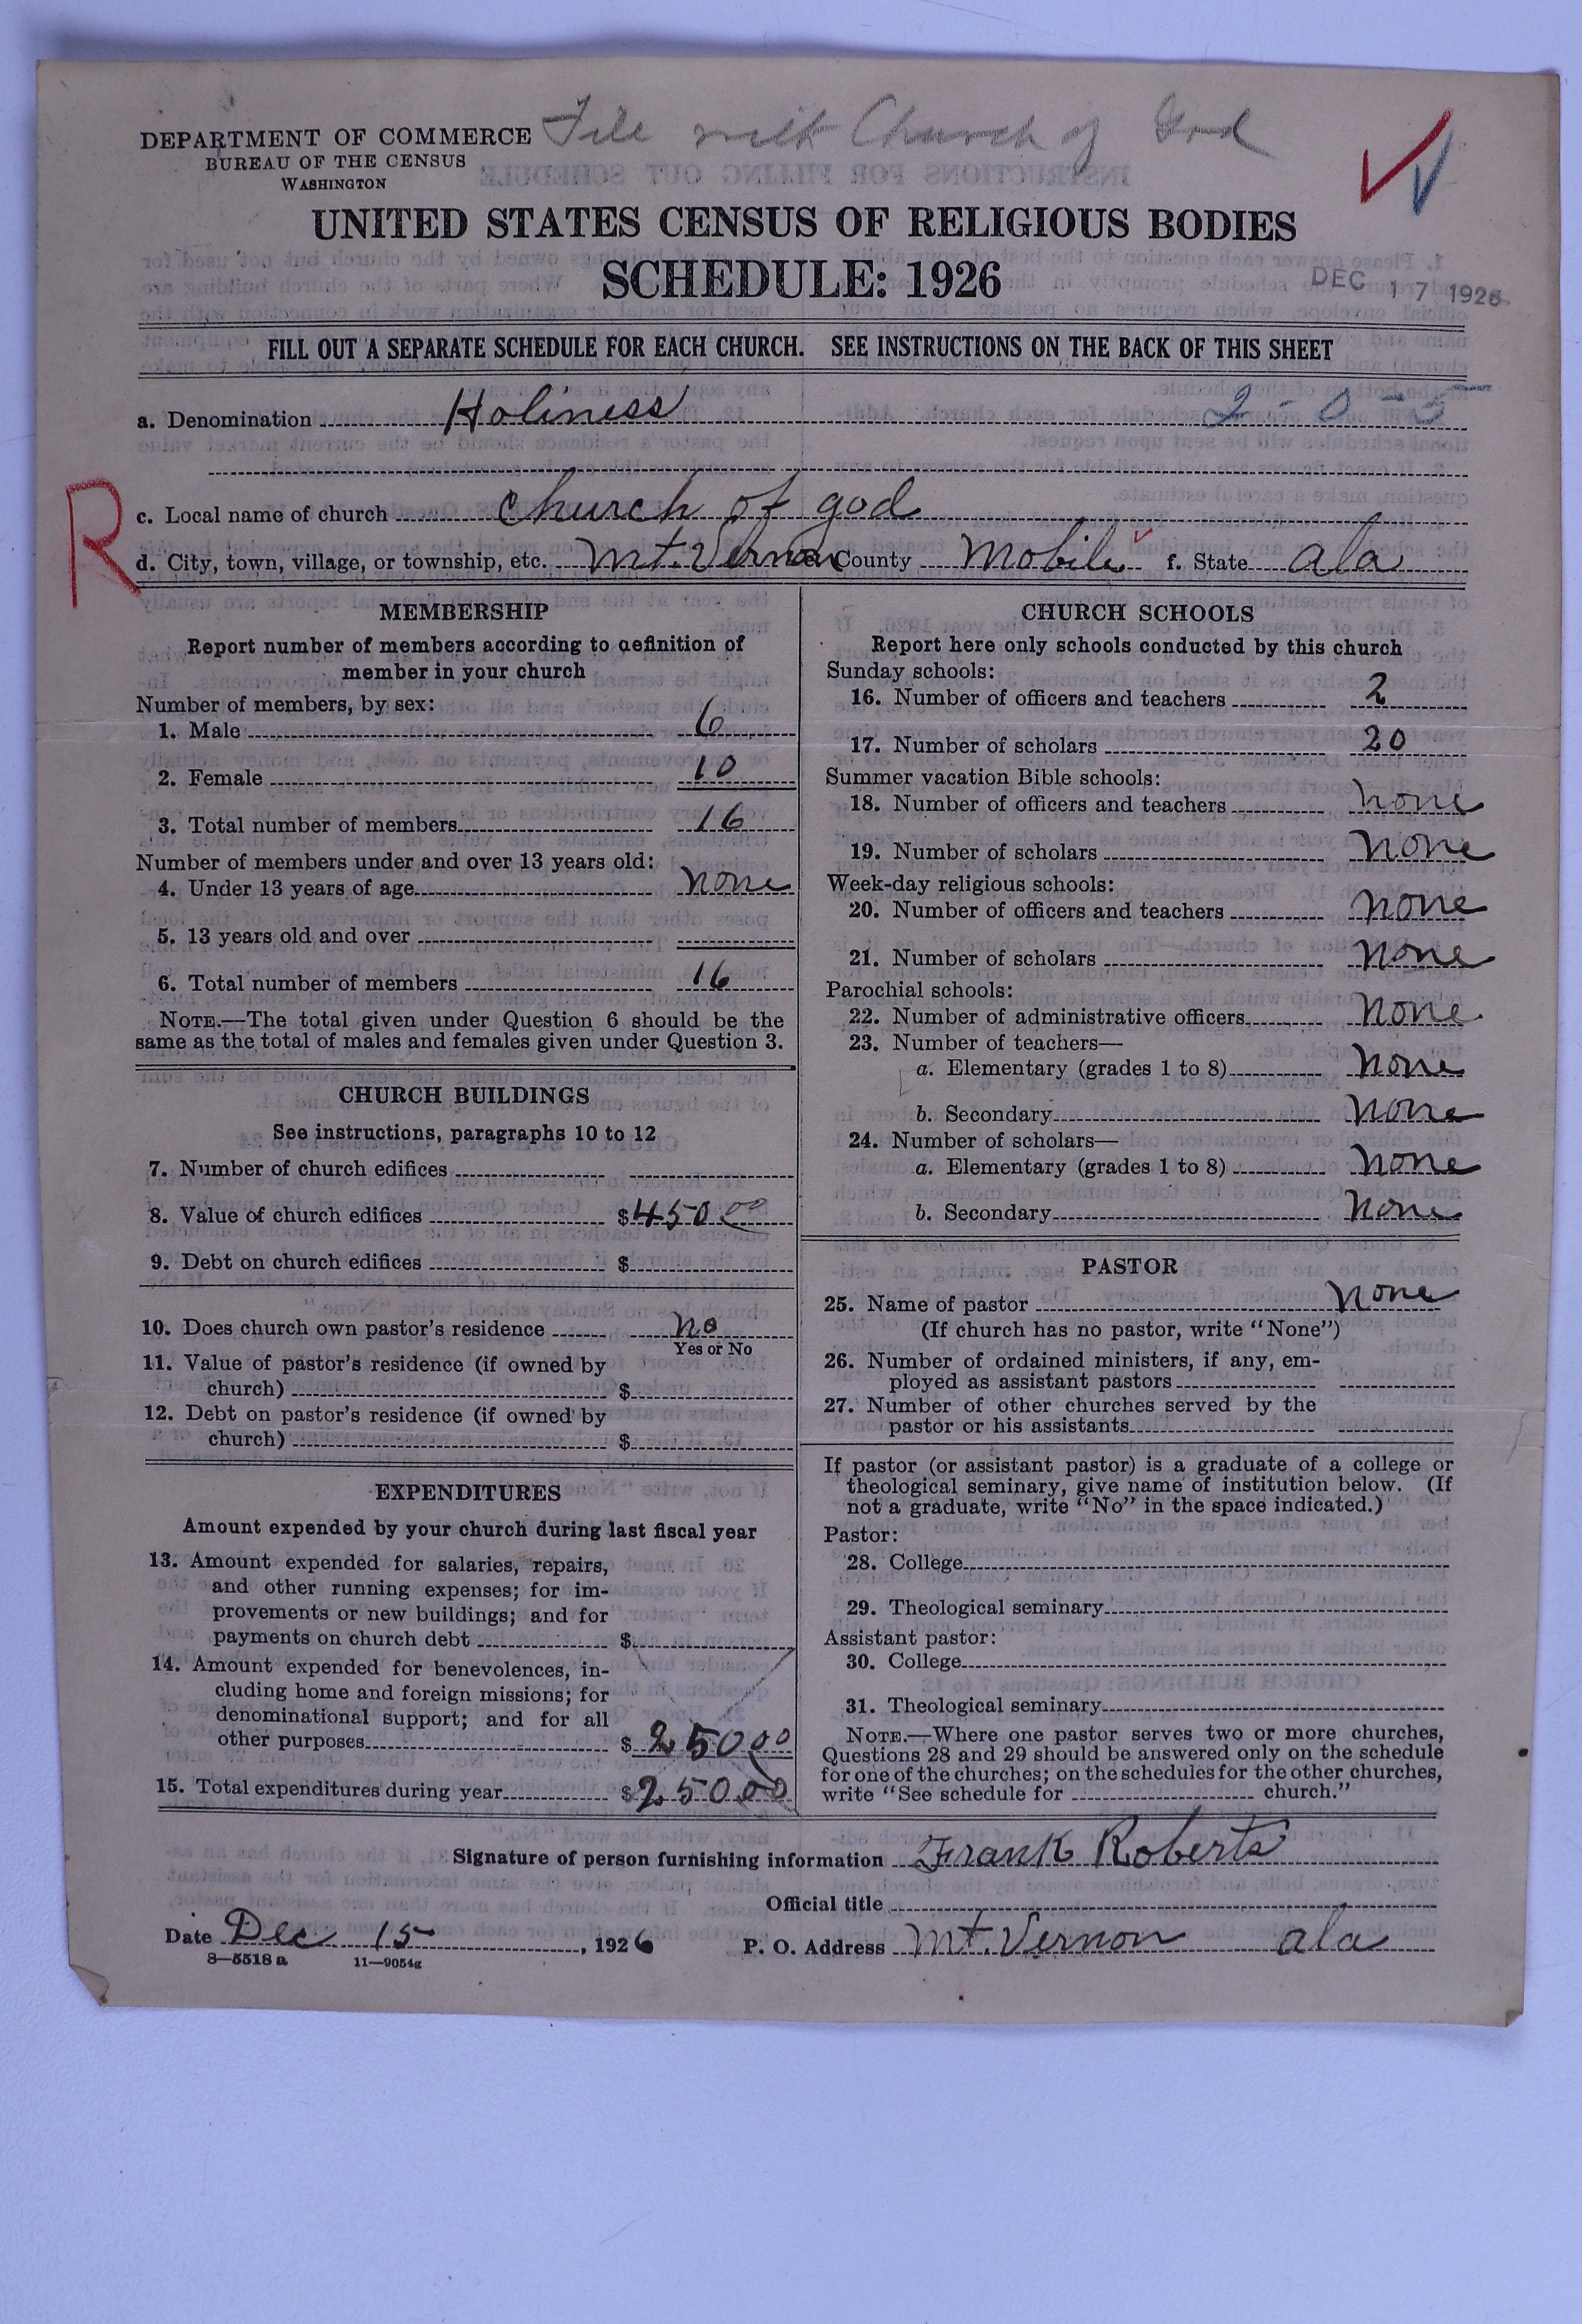 File with Church of God
DEPARTMENT OF COMMERCE
BUREAU OF THE CENSUS
WASHINGTON
UNITED STATES CENSUS OF RELIGIOUS BODIES
SCHEDULE: 1926
DEC 17 1926
FILL OUT A SEPARATE SCHEDULE FOR EACH CHURCH. SEE INSTRUCTIONS ON THE BACK OF THIS SHEET
a. Denomination Holiness 2-0-5
R
c. Local name of church church of god
d. City, town, village, or township, etc. Mt. Vernon e. County Mobile f. State ala
MEMBERSHIP
Report number of members according to definition of
member in your church
Number of members, by sex:
1. Male 6
2. Female 10
3. Total number of members 16
Number of members under and over 13 years old:
4. Under 13 years of age none
5. 13 years old and over
6. Total number of members 16
NOTE.—The total given under Question 6 should be the
same as the total of males and females given under Question 3.
CHURCH BUILDINGS
See instructions, paragraphs 10 to 12
7. Number of church edifices
8. Value of church edifices $450.00
9. Debt on church edifices $
10. Does church own pastor's residence no
Yes or No
11. Value of pastor's residence (if owned by
church) $
12. Debt on pastor's residence (if owned by
church) $
EXPENDITURES
Amount expended by your church during last fiscal year
13. Amount expended for salaries, repairs,
and other running expenses; for im-
provements or new buildings; and for
payments on church debt $
14. Amount expended for benevolences, in-
cluding home and foreign missions; for
denominational support; and for all
other purposes $250.00
15. Total expenditures during year $250.00
CHURCH SCHOOLS
Report here only schools conducted by this church
Sunday schools:
16. Number of officers and teachers 2
17. Number of scholars 20
Summer vacation Bible schools:
18. Number of officers and teachers none
19. Number of scholars none
Week-day religious schools:
20. Number of officers and teachers none
21. Number of scholars none
Parochial schools:
22. Number of administrative officers none
23. Number of teachers—
a. Elementary (grades 1 to 8) none
b. Secondary none
24. Number of scholars—
a. Elementary (grades 1 to 8) none
b. Secondary none
PASTOR
25. Name of pastor none
(If church has no pastor, write "None")
26. Number of ordained ministers, if any, em-
ployed as assistant pastors
27. Number of other churches served by the
pastor or his assistants
If pastor (or assistant pastor) is a graduate of a college or
theological seminary, give name of institution below. (If
not a graduate, write "No" in the space indicated.)
Pastor:
28. College
29. Theological seminary
Assistant pastor:
30. College
31. Theological seminary
NOTE.—Where one pastor serves two or more churches,
Questions 28 and 29 should be answered only on the schedule
for one of the churches; on the schedules for the other churches,
write "See schedule for church."
Signature of person furnishing information Frank Roberts
Official title
Date Dec 15, 1926 P. O. Address Mt. Vernon ala
8—5518 a 11—9054g